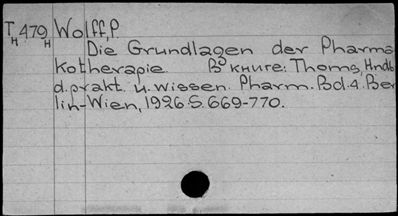 T 479 Wolff, P.
H H
Die Grundlagen der Pharma
kotherapie. В книге: Thoms, Hndb
d. prakt. u. wissen. Pharm. Bd. 4. Ber
lin-Wien, 1926. S. 669-770.